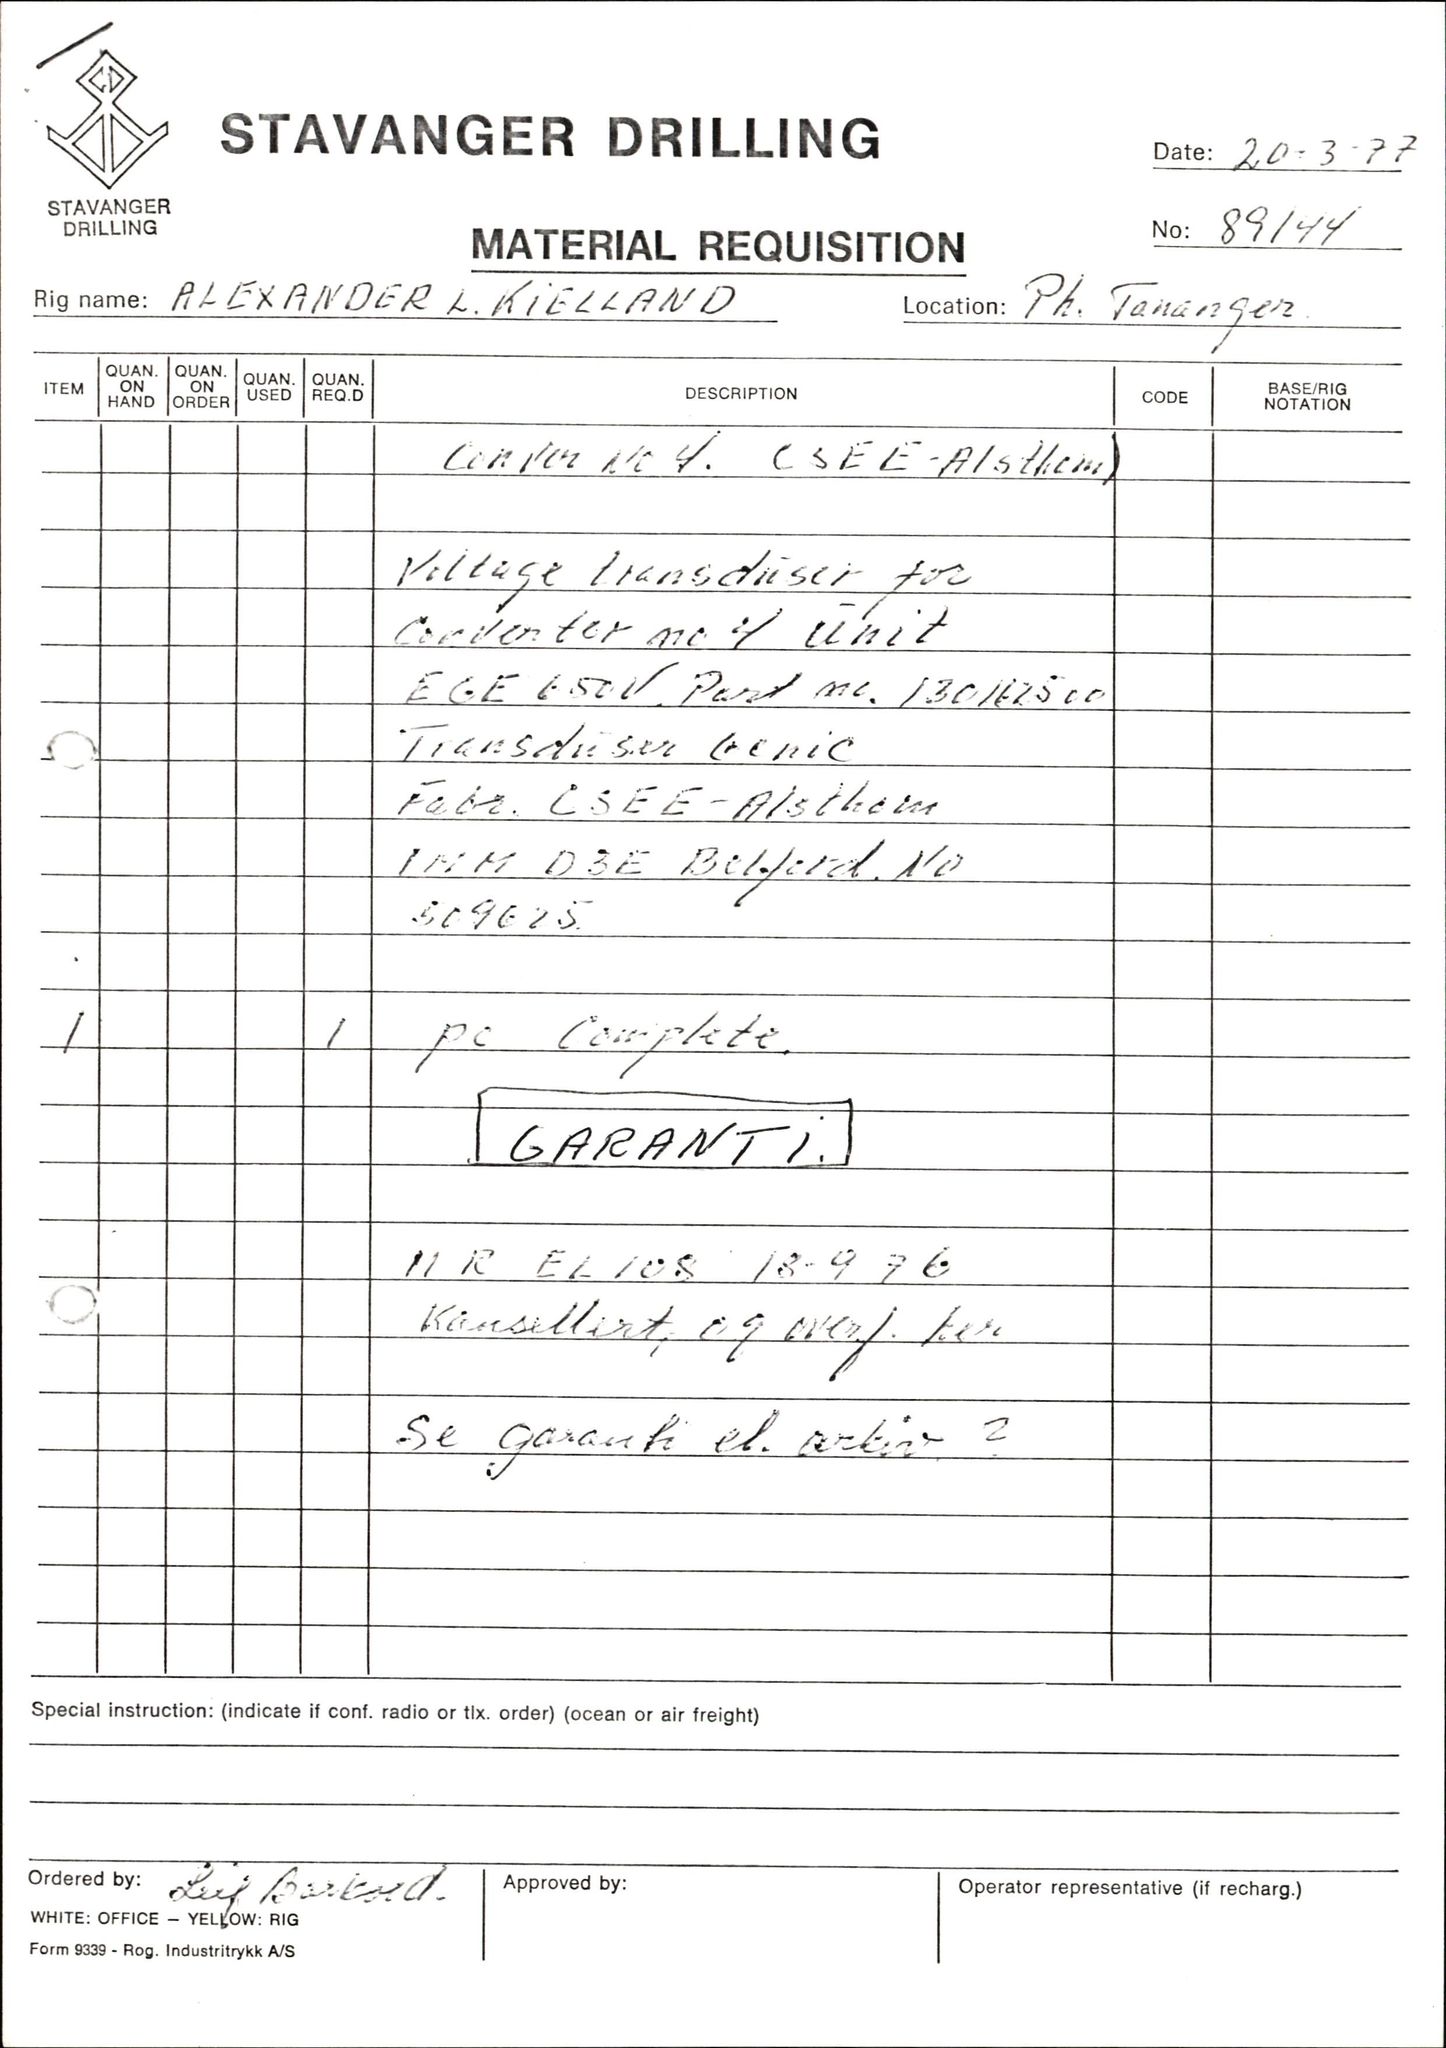 CD
STAVANGER DRILLING
STAVANGER
DRILLING
Date: 20-3-77
No: 89/44
MATERIAL REQUISITION
Rig name: ALEXANDER L. KIELLAND
Location: Ph. Tananger.
ITEM QUAN. ON HAND QUAN. ON ORDER QUAN. USED QUAN. REQ.D DESCRIPTION CODE BASE/RIG NOTATION
No 4. CSEE-Alsthom)
Voltage transdüser for
no 4 ünit
650V. Part no.
Transdüser
Fabr. CSEE-Alsthom
D3E No
509625.
1 1 pc Complete.
GARANTI.
MR EL 108 13-9 76
Kansellert, og overf. her
Se garanti el. arkiv ?
Special instruction: (indicate if conf. radio or tlx. order) (ocean or air freight)
Ordered by: Leif
Approved by:
Operator representative (if recharg.)
WHITE: OFFICE – YELLOW: RIG
Form 9339 - Rog. Industritrykk A/S